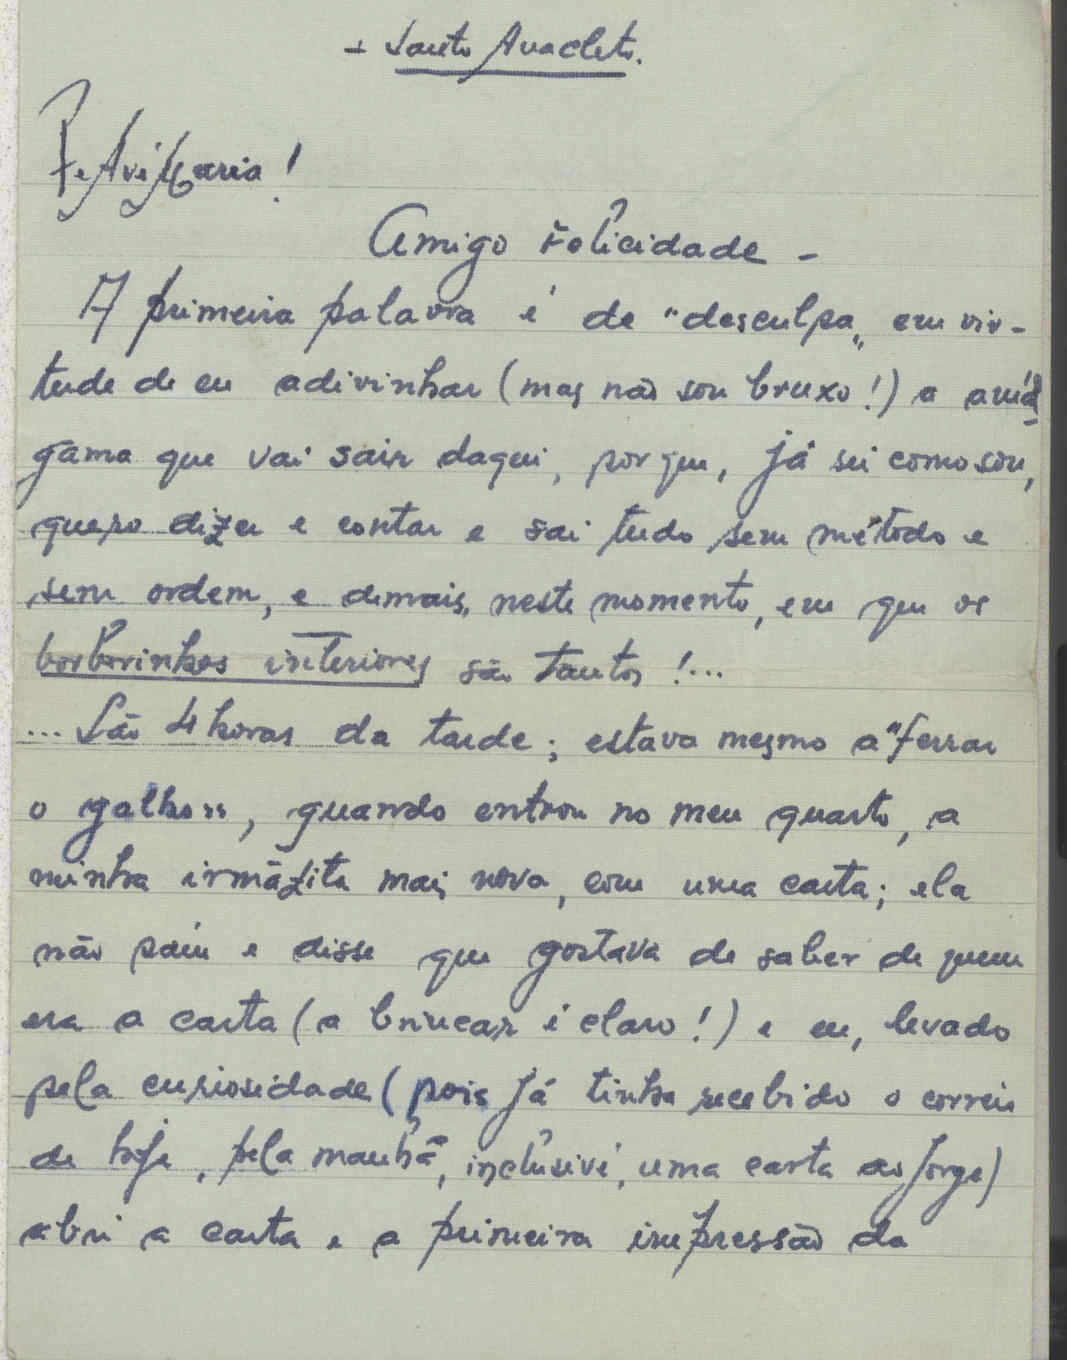 + Santo Anacleto.
P. Avé Maria!
Amigo Felicidade -
A primeira palavra é de "desculpa„ em vir-
tude de eu adivinhar (mas não sou bruxo!) a amál-
gama que vai sair daqui, porque, já sei como sou,
quero dizer e contar e sai tudo sem método e
sem ordem, e demais, neste momento, em que os
borborinhos interiores são tantos!...
... São 4 horas da tarde; estava mesmo a "ferrar
o galho", quando entrou no meu quarto, a
minha irmãzita mais nova, com uma carta; ela
não saiu e disse que gostava de saber de quem
era a carta (a brincar é claro!) e eu, levado
pela curiosidade (pois já tinha recebido o correio
de hoje, pela manhã, inclusivé, uma carta do Jorge)
abri a carta e a primeira impressão da